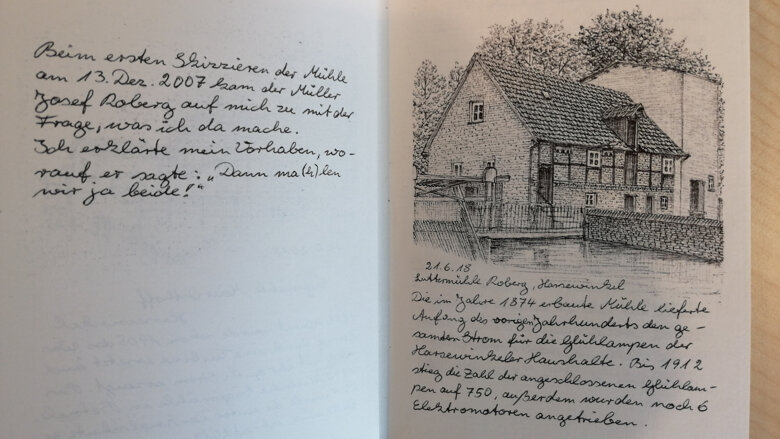 Beim ersten Skizzieren der Mühle
am 13. Dez. 2007 kam der Müller
Josef Roberg auf mich zu mit der
Frage, was ich da mache.
Ich erklärte mein Vorhaben, wo-
rauf er sagte: „Dann ma(h)len
wir ja beide!“
21.6.18
Luttermühle Roberg, Harsewinkel
Die im Jahre 1874 erbaute Mühle lieferte
Anfang des vorigen Jahrhunderts den ge-
samten Strom für die Glühlampen der
Harsewinkeler Haushalte. Bis 1912
stieg die Zahl der angeschlossenen Glühlam-
pen auf 750, außerdem wurden noch 6
Elektromotoren angetrieben.